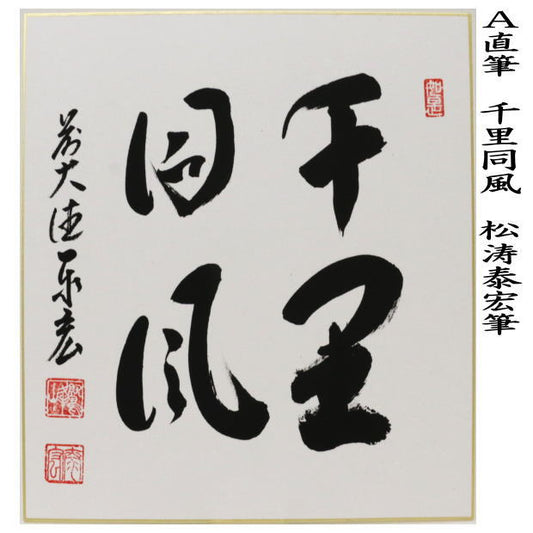 A直筆　千里同風　松涛泰宏筆
千里
同風
前大徳泰宏